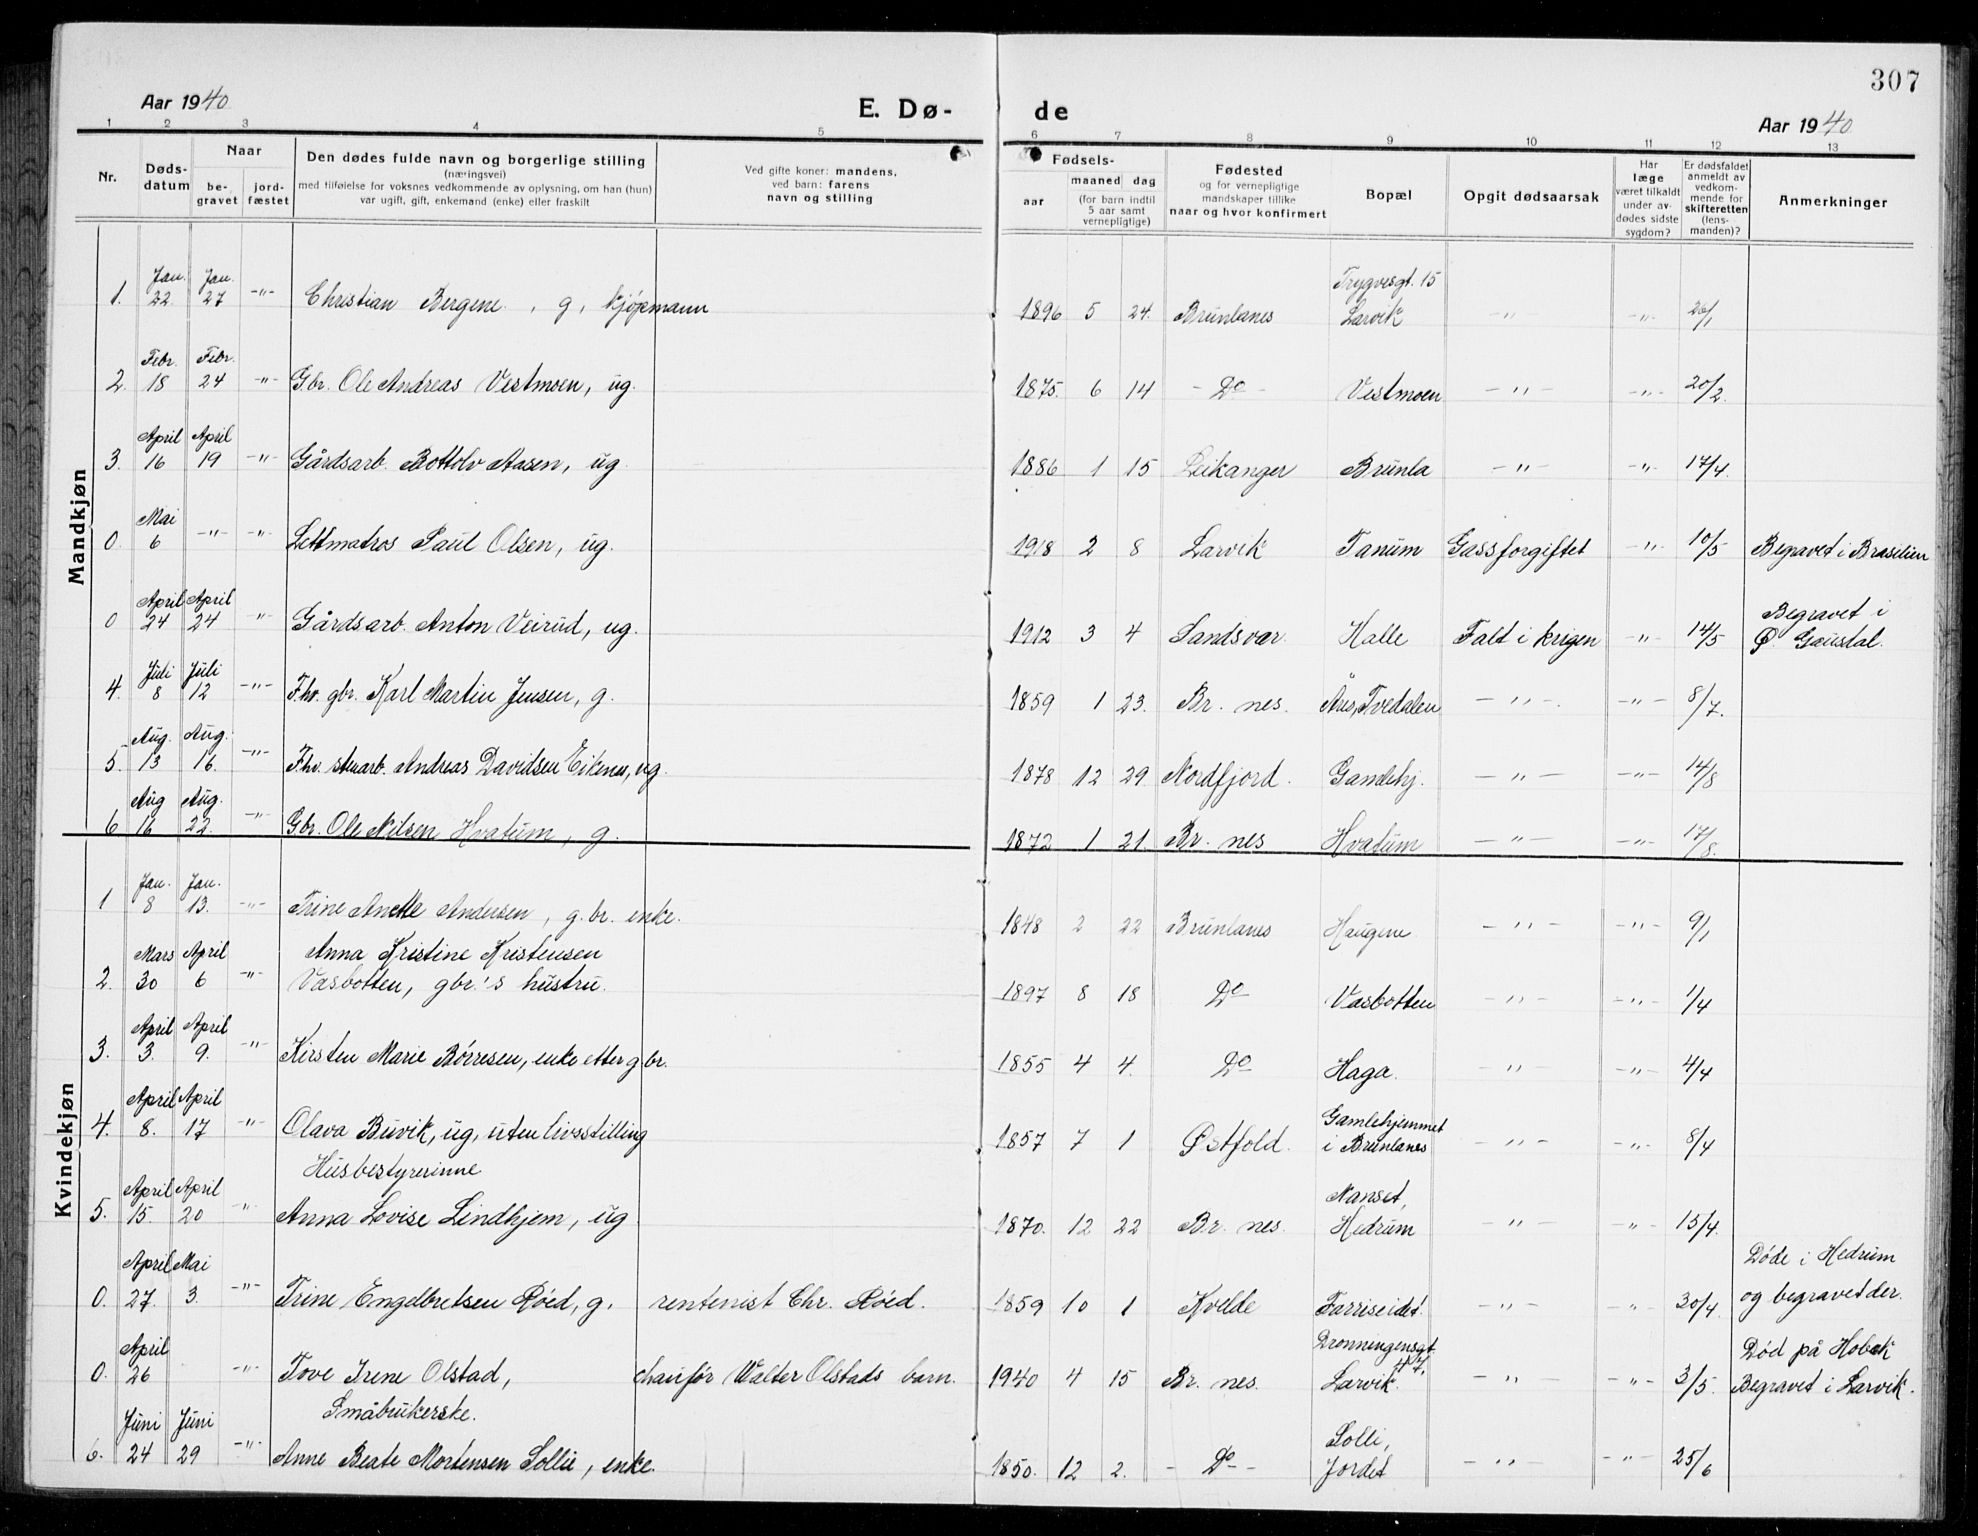 307
Aar 1940
E. Dø-
de
Aar 1940
1 2 3 4 5 6 7 8 9 10 11 12 13
Nr.
Døds-
datum
Naar
be-
gravet
jord-
fæstet
Den dødes fulde navn og borgerlige stilling
(næringsvei)
med tilføielse for voksnes vedkommende av oplysning, om han (hun)
var ugift, gift, enkemand (enke) eller fraskilt
Ved gifte koner: mandens,
ved barn: farens
navn og stilling
Fødsels-
aar
maaned dag
(for barn indtil
5 aar samt
vernepligtige)
Fødested
og for vernepligtige
mandskaper tillike
naar og hvor konfirmert
Bopæl
Opgit dødsaarsak
Har
læge
været tilkaldt
under av-
dødes sidste
sygdom?
Er dødsfaldet
anmeldt av
vedkom-
mende for
skifteretten
(lens-
manden)?
Anmerkninger
Mandkjøn
1. Jan. 22. Jan. 27 -"- Christian Bergene, g, kjøpmann 1896 5 24. Brunlanes Trygvesgt. 15 Larvik -"- -"- 26/1
2. Febr. 18 Febr. 24 -"- Gbr. Ole Andreas Vestmoen, ug. 1875. 6 14 - Do - Vestmoen -"- -"- 20/2.
3. April 16 April 19 -"- Gårdsarb. Bottolv Aasen, ug. 1886 1 15 Leikanger Brunla -"- -"- 17/4.
0. Mai 6 -"- -"- Lettmatros Paul Olsen, ug. 1918 2 8 Larvik Tanum Gassforgiftet -"- 10/5 Begravet i Brasilien
0 April 24 April 24 -"- Gårdsarb. Anton Veirud, ug. 1912 3 4 Sandsvær Halle Falt i krigen -"- 14/5 Begravet i Ø. Gausdal.
4. Juli 8 Juli 12 -"- Fhv. gbr. Karl Martin Jensen, g. 1859 1 23. Br. nes. Års, Tvedalen -"- -"- 8/7.
5. Aug. 13 Aug. 16. -"- Fhv. stenarb. Andreas Davidsen Eikenes, ug. 1878 12 29. Nordfjord. Gamlehj. -"- -"- 14/8
6 Aug 16 Aug. 22. -"- Gbr. Ole Nilsen Hvatum, g. 1872 1 21. Br. nes Hvatum -"- -"- 17/8.
Kvindekjøn
1 Jan. 8 Jan. 13. -"- Trine Anette Andersen, g. br. enke. 1848 2 22 Brunlanes Haugene -"- -"- 9/1
2. Mars 30 April 6 -"- Anna Kristine Kristensen Vasbotten, gbr.'s hustru. 1897 8 18 Do Vasbotten -"- -"- 1/4
3. April 3. April 9. -"- Kirsten Marie Børresen, enke etter gbr. 1855 4 4. Do Haga. -"- -"- 4/4
4. April 8. April 17 -"- Olava Buvik, ug, uten livsstilling 1857 7 1 Østfold. Gamlehjemmet i Brunlanes -"- -"- 8/4
5. April 15. April 20 -"- Husbestyrerinne Anna Lovise Lindhjem, ug 1870. 12 22 Br. nes. Nanset, Hedrum -"- -"- 15/4.
0. April 27. Mai 3. -"- Trine Engelbretsen Røed, g. rentenist Chr. Røed. 1859 10 1 Kvelde Farriseidet. -"- -"- 30/4 Døde i Hedrum og begravet der.
0. April 26 -"- Tove Irene Olstad, chaufør Walter Olstads barn. 1940 4 15 Br. nes. Dronningensgt. Larvik. -"- -"- 3/5. Død på Hobæk Begravet i Larvik.
6. Juni 24 Juni 29 -"- Småbrukerske. Anne Beate Mortensen Sollie, enke. 1850. 12 2. - Do - Solli, Jordet -"- -"- 25/6